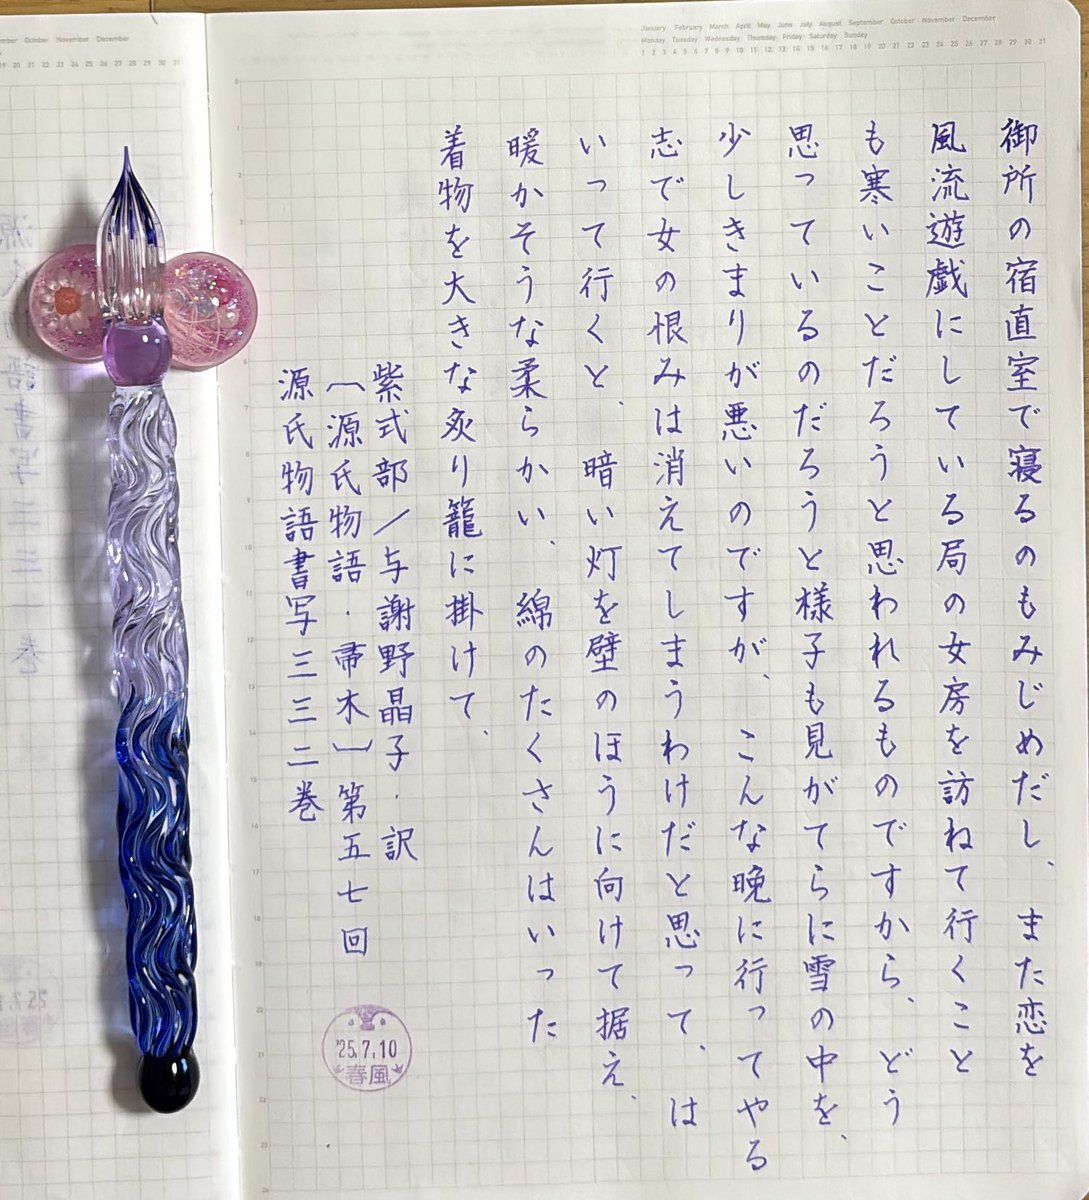 January February March April May June July August September October November December
Monday Tuesday Wednesday Thursday Friday Saturday Sunday
1 2 3 4 5 6 7 8 9 10 11 12 13 14 15 16 17 18 19 20 21 22 23 24 25 26 27 28 29 30 31
御所の宿直室で寝るのもみじめだし、また恋を
風流遊戯にしている局の女房を訪ねて行くこと
も寒いことだろうと思われるものですから、どう
思っているのだろうと様子も見がてらに雪の中を、
少しきまりが悪いのですが、こんな晩に行ってやる
志で女の恨みは消えてしまうわけだと思って、は
いって行くと、暗い灯を壁のほうに向けて据え、
暖かそうな柔らかい、綿のたくさんはいった
着物を大きな炙り籠に掛けて、
紫式部/与謝野晶子・訳
(源氏物語・帚木)第五七回
源氏物語書写三三二巻
'25.7.10
春風
October November December
22 23 24 25 26 27 28 29 30 31